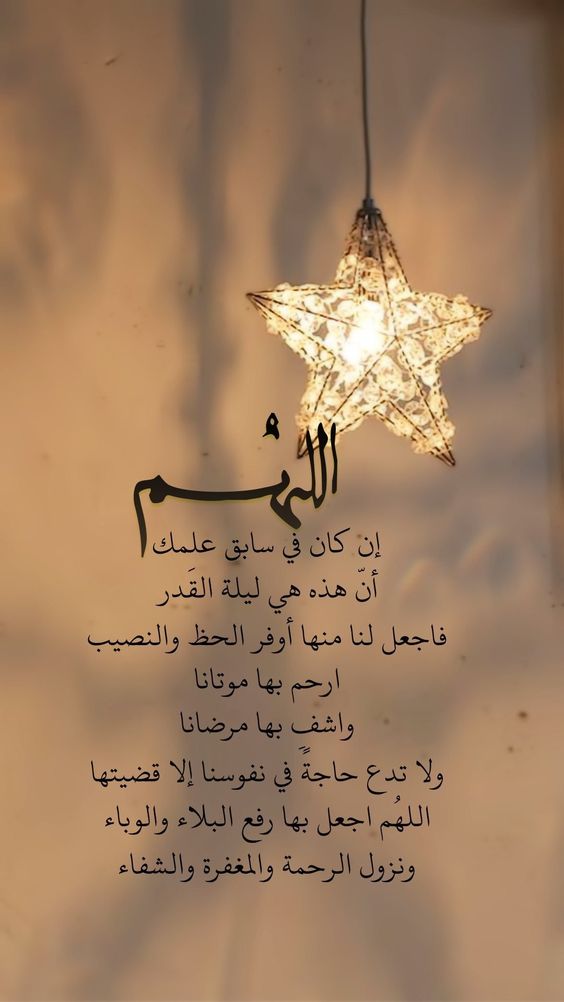 اللهُم
إن كان في سابق علمك
أنّ هذه هي ليلة القَدر
فاجعل لنا منها أوفر الحظ والنصيب
ارحم بها موتانا
واشفِ بها مرضانا
ولا تدع حاجةً في نفوسنا إلا قضيتها
اللهُم اجعل بها رفع البلاء والوباء
ونزول الرحمة والمغفرة والشفاء